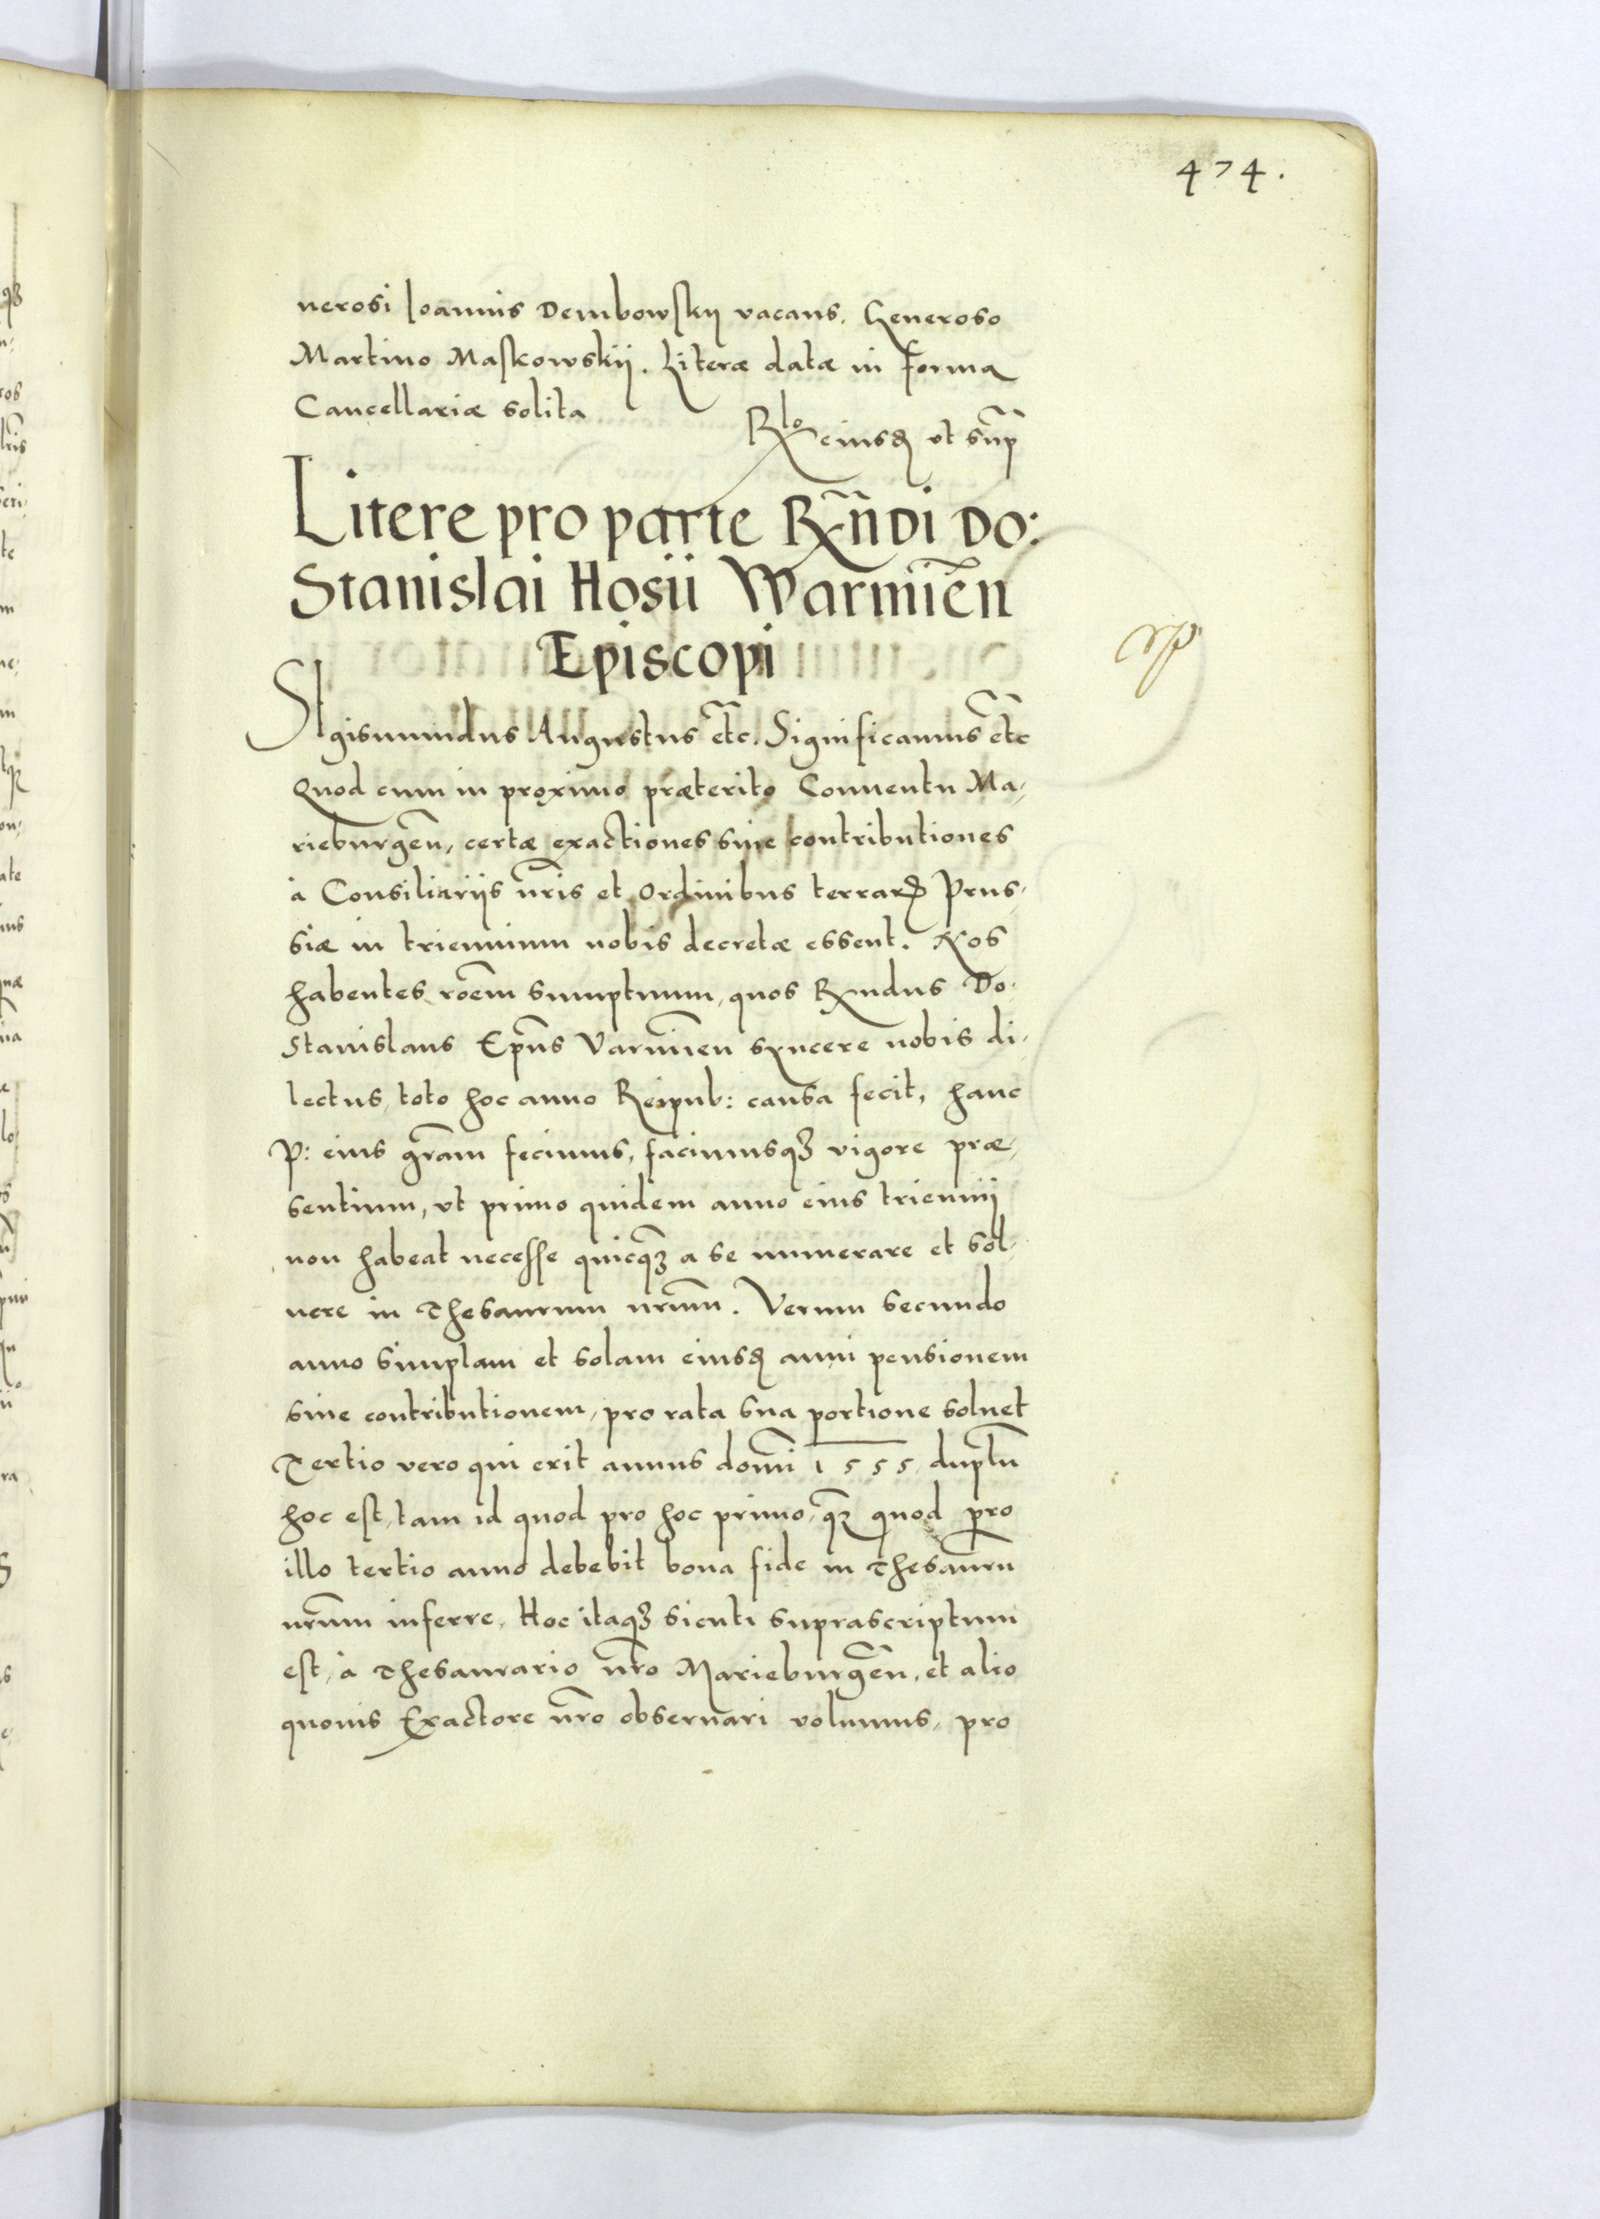 474.
nerosi Ioannis Dembowskij vacans. Generoso
Martino Maskowskij. Literæ datæ in forma
Cancellariæ solita
Rlo eiusd ut supr
Litere pro parte Rndi Do:
Stanislai Hosii Warmien
Episcopi
Sigismundus Augustus etc. Significamus etc
Quod cum in proximo præterito Conuentu Ma,
rieburgen, certæ exactiones siue contributiones
à Consiliariis nris et Ordinibus terrarum Prus,
siæ in triennium nobis decretæ essent. Nos
habentes roem sumptuum, quos Rndus Do.
Stanislaus Epus Varmien syncere nobis di,
lectus, toto hoc anno Reipub: causa fecit, hanc
P: eius gram fecimus, facimusqз vigore præ,
sentium, ut primo quidem anno eius triennij
non habeat necesse quicqз a se numerare et sol,
uere in Thesaurum nrum. Verum secundo
anno simplam et solam eiusd anni pensionem
siue contributionem, pro rata sua portione soluet
Tertio vero qui erit annus domi 1555, duplum
hoc est, tam id quod pro hoc primo, qз quod pro
illo tertio anno debebit bona fide in Thesauru
nrum inferre. Hoc itaqз sicuti suprascriptum
est, à Thesaurario nro Marieburgen, et alio
quouis Exactore nro obseruari volumus, pro